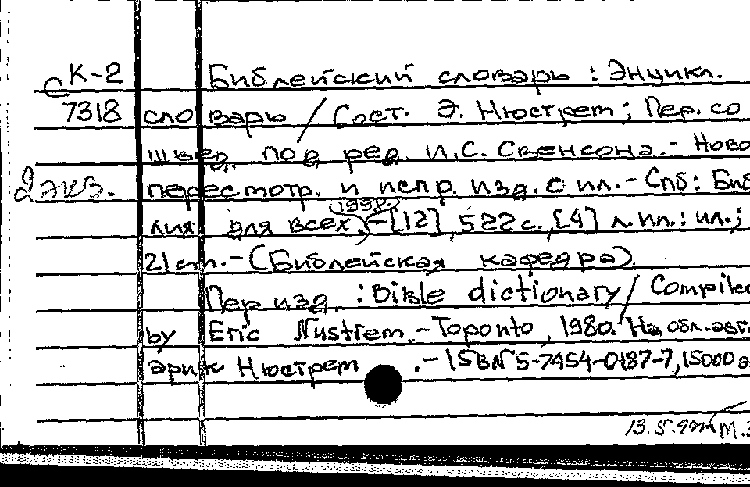 К-2 Библейский словарь : Энцикл.
С 7318 словарь / Сост. Э. Нюстрем; Пер. со
швед. под ред. И.С. Свенсона.- Ново
2 экз. пересмотр. и испр. изд. с ил.- Спб: Биб
лия для всех, 1998.-[12], 522 с. [4] л. ил.: ил.;
21 см.- (Библейская кафедра).
Пер. изд. : Bible dictionary / Compiled
by Eric Nustrem.-Toронto, 1980. На обл. авт.
Эрик Нюстрем .- ISBN 5-7454-0187-7, 15000 э
13.5.99 М.